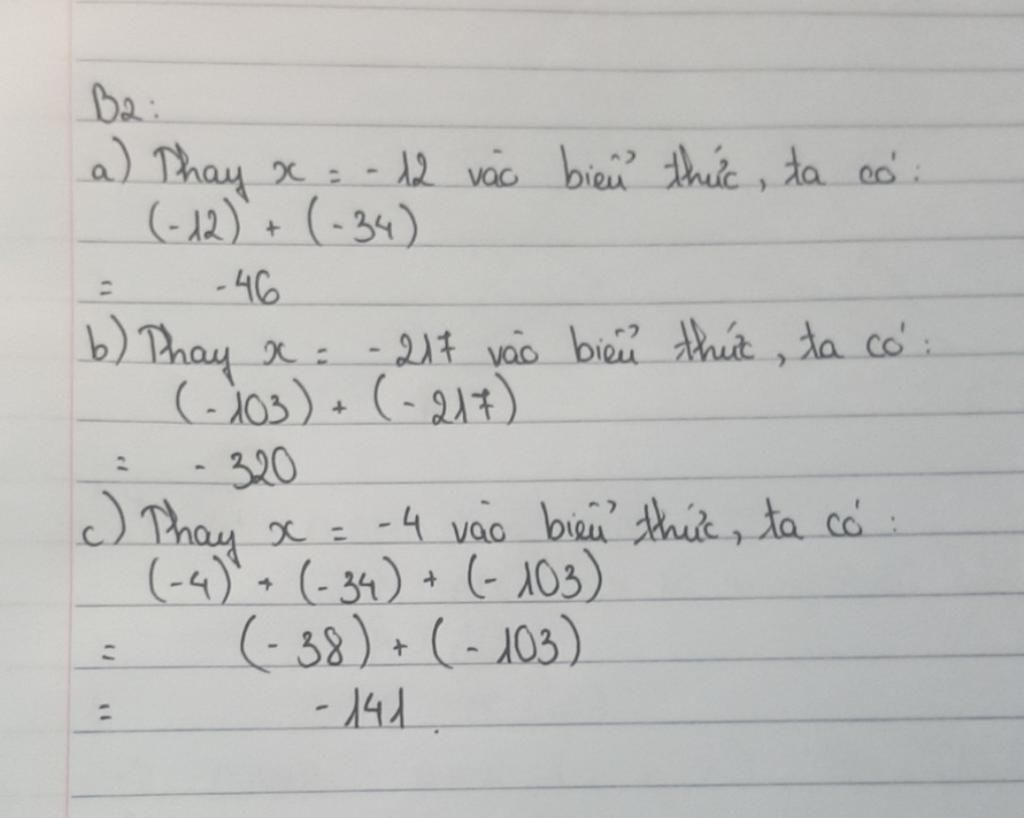 B2:
a) Thay x = -12 vào biểu thức, ta có:
(-12) + (-34)
= -46
b) Thay x = -217 vào biểu thức, ta có:
(-103) + (-217)
= -320
c) Thay x = -4 vào biểu thức, ta có:
(-4) + (-34) + (-103)
= (-38) + (-103)
= -141.